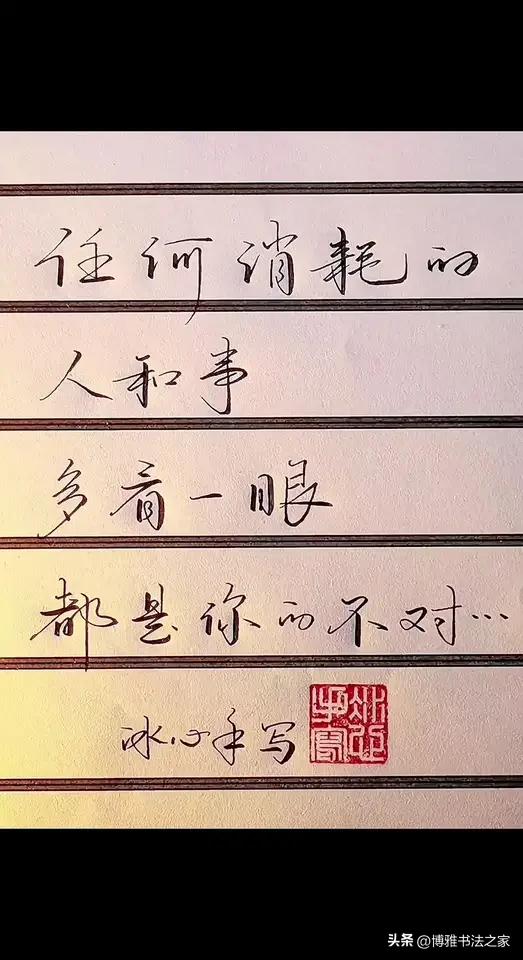 任何消耗的
人和事
多看一眼
都是你的不对…
冰心手写
冰心手写
头条 @博雅书法之家